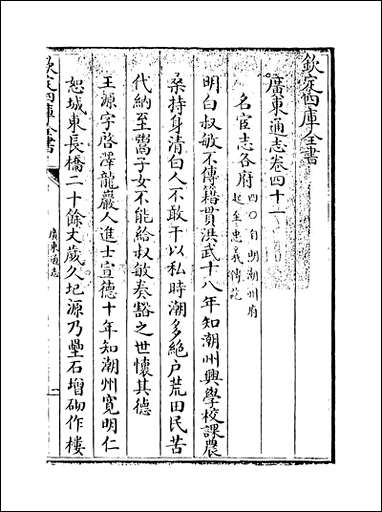 欽定四庫全書
廣東通志卷四十一
名宦志各府
四〇自明潮州府
起至忠義傳訖
明白叔敏不傳籍貫洪武十八年知潮州興學校課農
桑持身清白人不敢干以私時潮多絶户荒田民苦
代納至鬻子女不能給叔敏奏豁之世懷其德
王源字啓澤龍巖人進士宣德十年知潮州寛明仁
恕城東長橋二十餘丈歲久圮源乃壘石增砌作樓
欽定四庫全書
廣東通志
一